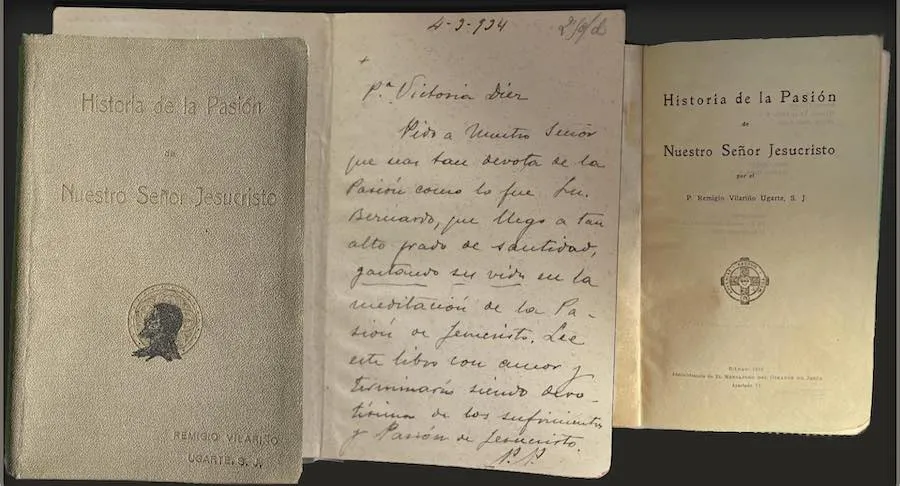 Historia de la Pasión
de
Nuestro Señor Jesucristo
REMIGIO VILARIÑO
UGARTE, S. J.
4-3-934
+
P.ª Victoria Díez
Pido a Nuestro Señor
que seas tan devota de la
Pasión como lo fue Sn.
Bernardo, que llego a tan
alto grado de santidad,
gastando su vida en la
meditación de la Pa-
sión de Jesucristo. Lee
este libro con amor y
terminarás siendo devo-
tísima de los sufrimientos
y Pasión de Jesucristo.
Historia de la Pasión
de
Nuestro Señor Jesucristo
por el
P. Remigio Vilariño Ugarte, S. J
BILBAO
Administración de EL MENSAJERO DEL CORAZON DE JESÚS
Apartado 73